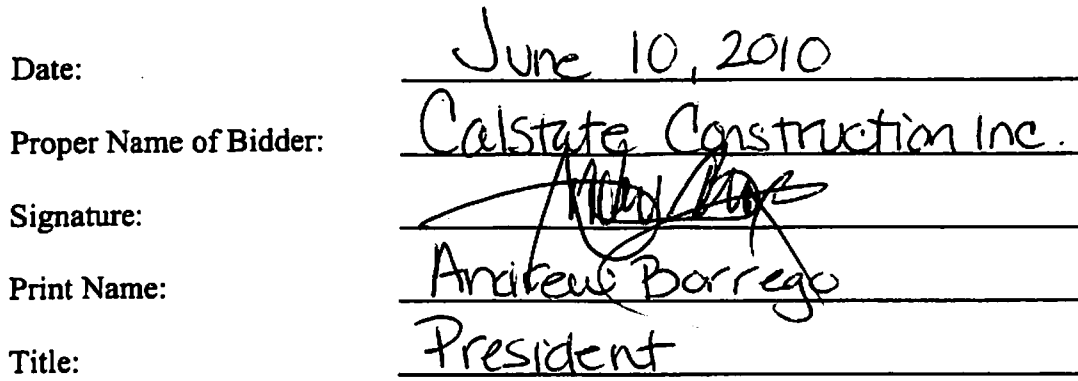 Date: June 10, 2010
Proper Name of Bidder: Calstate Construction Inc.
Signature:
Print Name: Andrew Borrego
Title: President